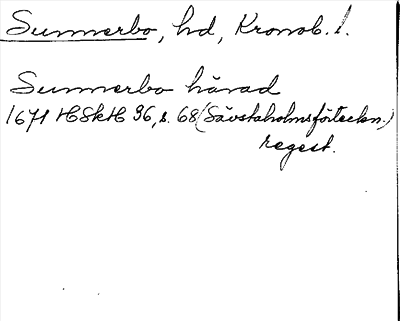 Sunnerbo, hd, Kronob. l.
Sunnerbo härad
1671 HSkH 36, s. 68 (Sävstaholmsförteckn.)
regest.